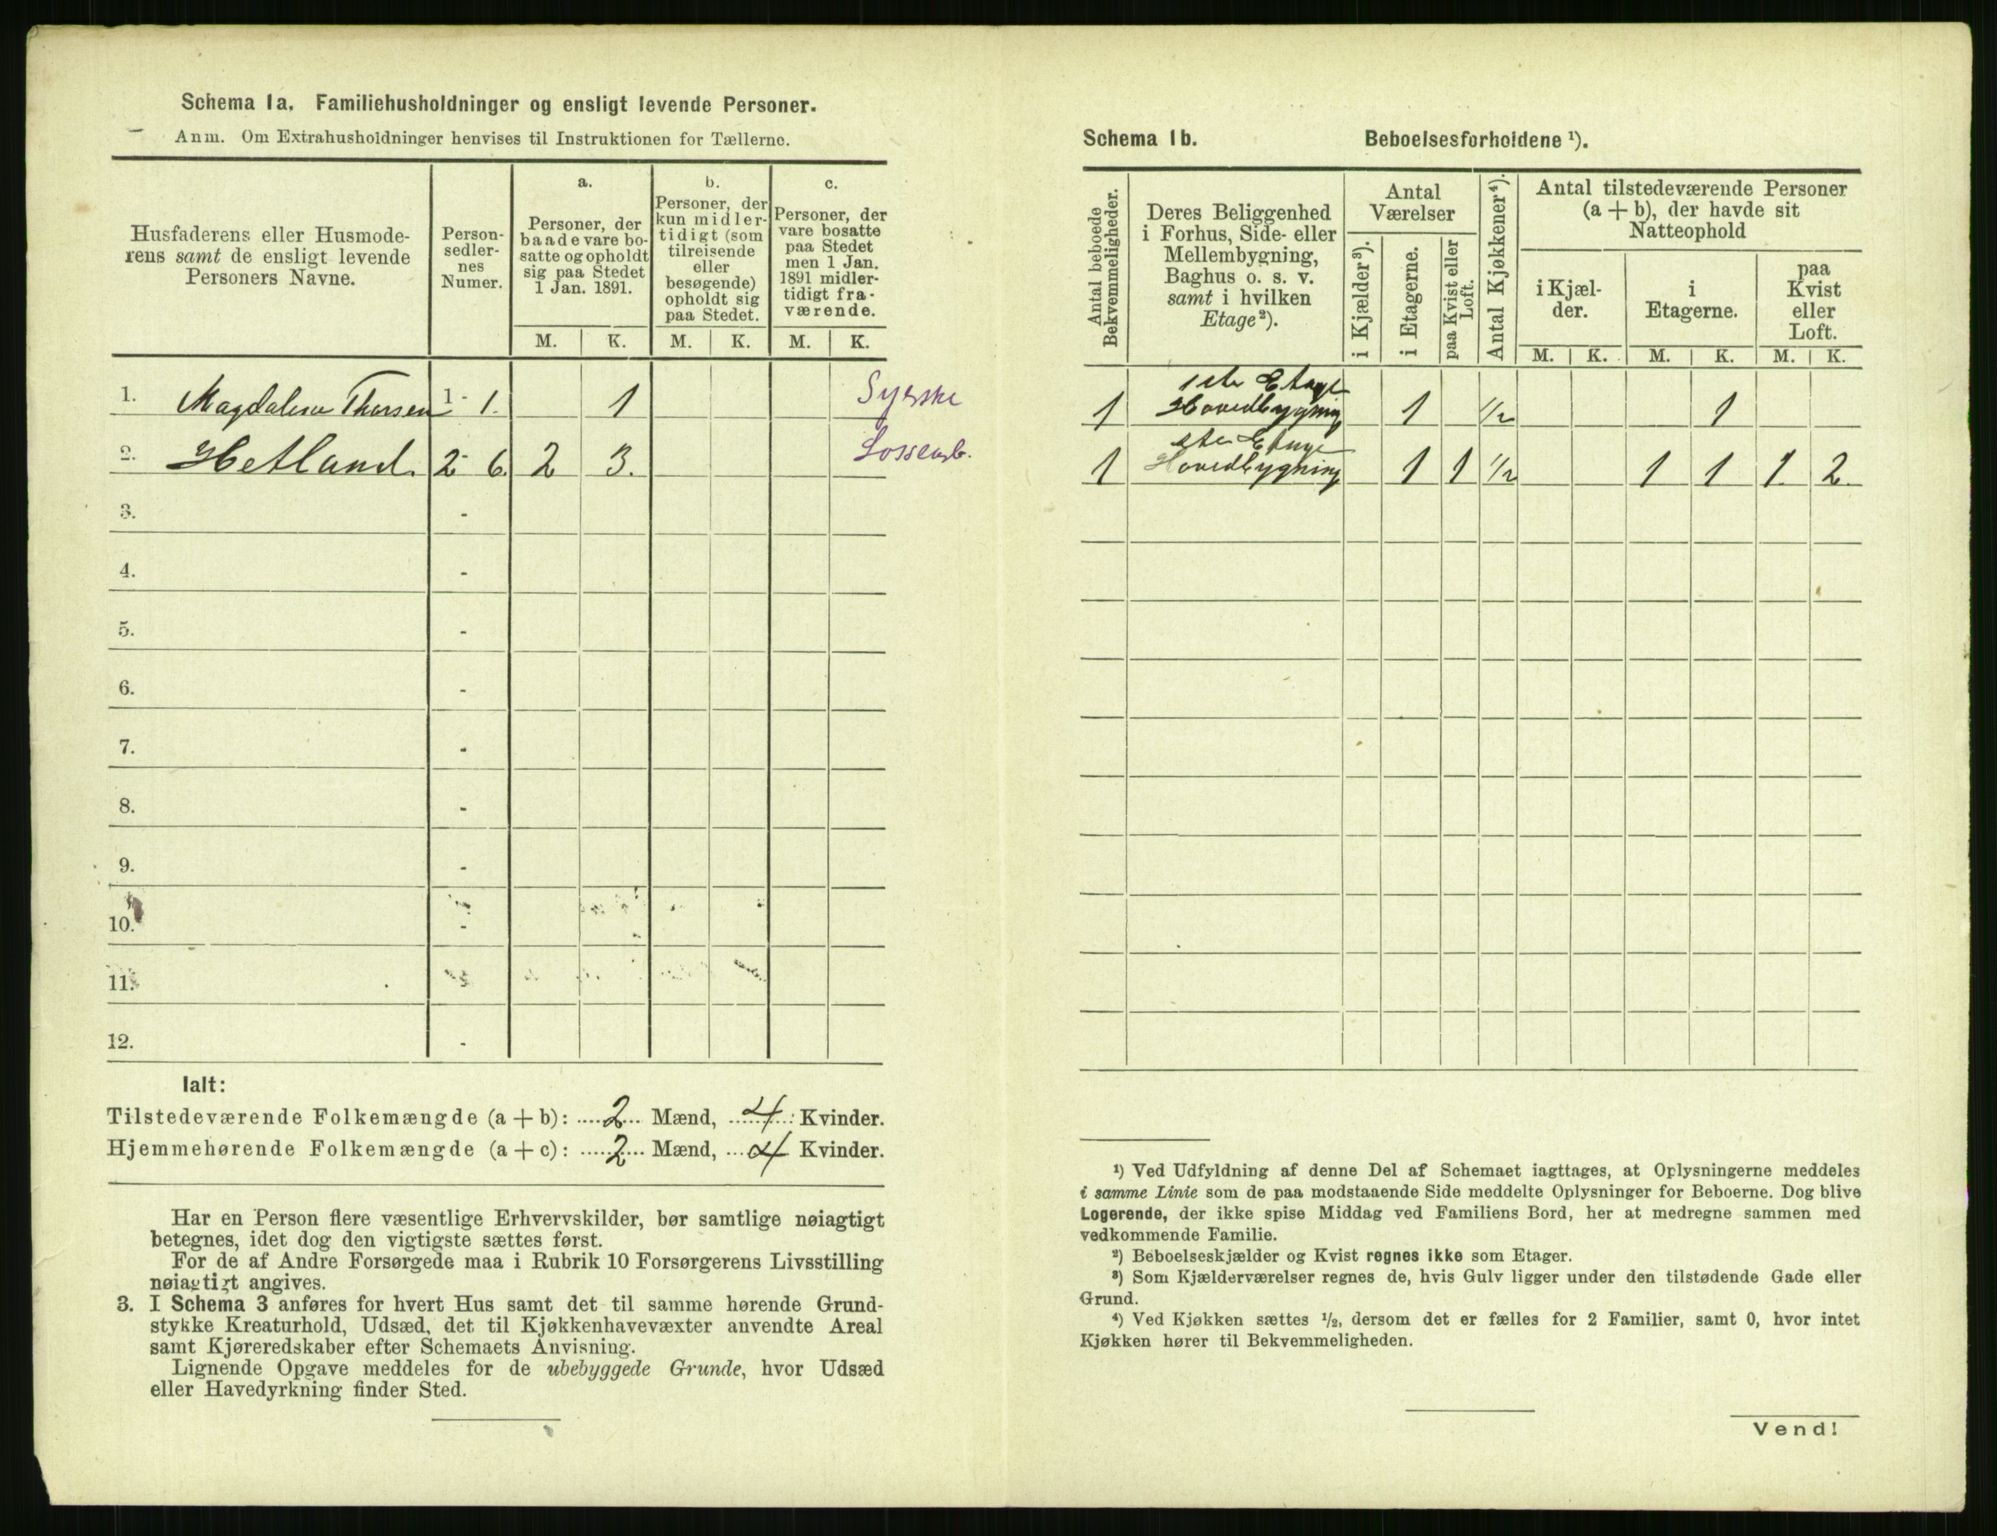 Schema 1a. Familiehusholdninger og ensligt levende Personer.
Anm. Om Extrahusholdninger henvises til Instruktionen for Tællerne.
Husfaderens eller Husmode-
rens samt de ensligt levende
Personers Navne.
Person-
sedler-
nes
Numer.
a.
Personer, der
baade vare bo-
satte og opholdt
sig paa Stedet
1 Jan. 1891.
b.
Personer, der
kun midler-
tidigt (som
tilreisende
eller
besøgende)
opholdt sig
paa Stedet.
c.
Personer, der
vare bosatte
paa Stedet
men 1 Jan.
1891 midler-
tidigt fra-
værende.
M. K. M. K. M. K.
1. Magdalena Thorsen 1 - 1. 1 Syerske
2. Hetland. 2 - 6 2 3. Lossearb.
3. -
4. -
5. -
6. -
7. -
8. -
9. -
10. -
11.
12. -
Ialt:
Tilstedeværende Folkemængde (a + b): 2 Mænd, 4 Kvinder.
Hjemmehørende Folkemængde (a + c): 2 Mænd, 4 Kvinder.
Har en Person flere væsentlige Erhvervskilder, bør samtlige nøiagtigt
betegnes, idet dog den vigtigste sættes først.
For de af Andre Forsørgede maa i Rubrik 10 Forsørgerens Livsstilling
nøiagtigt angives.
3. I Schema 3 anføres for hvert Hus samt det til samme hørende Grund-
stykke Kreaturhold, Udsæd, det til Kjøkkenhavevæxter anvendte Areal
samt Kjøreredskaber efter Schemaets Anvisning.
Lignende Opgave meddeles for de ubebyggede Grunde, hvor Udsæd
eller Havedyrkning finder Sted.
Schema 1b. Beboelsesforholdene ¹).
Antal beboede
Bekvemmeligheder.
Deres Beliggenhed
i Forhus, Side- eller
Mellembygning,
Baghus o. s. v.
samt i hvilken
Etage²).
Antal
Værelser
i Kjælder³).
i Etagerne.
paa Kvist eller
Loft.
Antal Kjøkkener⁴).
Antal tilstedeværende Personer
(a + b), der havde sit
Natteophold
i Kjæl-
der.
i
Etagerne.
paa
Kvist
eller
Loft.
M. K. M. K. M. K.
1 1ste Etage
Hovedbygning 1 1/2 1
1 1ste Etage
Hovedbygning 1 1 1/2 1 1 1 2
¹) Ved Udfyldning af denne Del af Schemaet iagttages, at Oplysningerne meddeles
i samme Linie som de paa modstaaende Side meddelte Oplysninger for Beboerne. Dog blive
Logerende, der ikke spise Middag ved Familiens Bord, her at medregne sammen med
vedkommende Familie.
²) Beboelseskjælder og Kvist regnes ikke som Etager.
³) Som Kjælderværelser regnes de, hvis Gulv ligger under den tilstødende Gade eller
Grund.
⁴) Ved Kjøkken sættes ½, dersom det er fælles for 2 Familier, samt 0, hvor intet
Kjøkken hører til Bekvemmeligheden.
Vend!